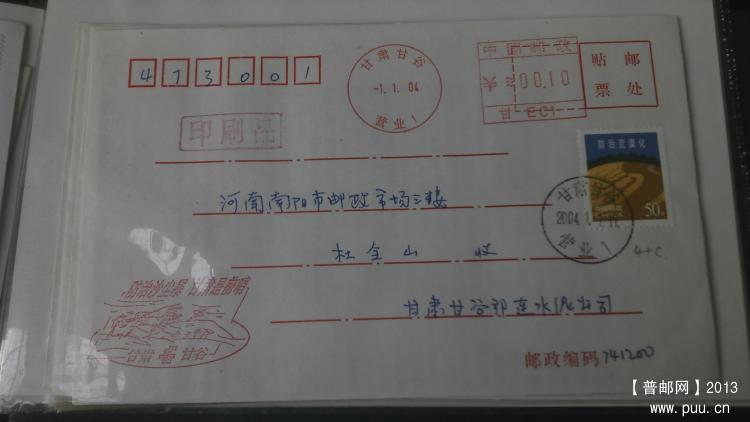 473001
甘肃甘谷
-1.1.04
营业1
中国邮政
00.10
甘 EC1
贴邮
票处
印刷品
防治荒漠化
50分
甘肃甘谷
2004.1.1.
营业1
河南南阳市邮政市场三楼
杜全山 收
甘肃甘谷祁连水泥公司
邮政编码741200
防治沙尘暴 甘肃是前哨
甘肃 甘谷
【普邮网】2013
www.puu.cn